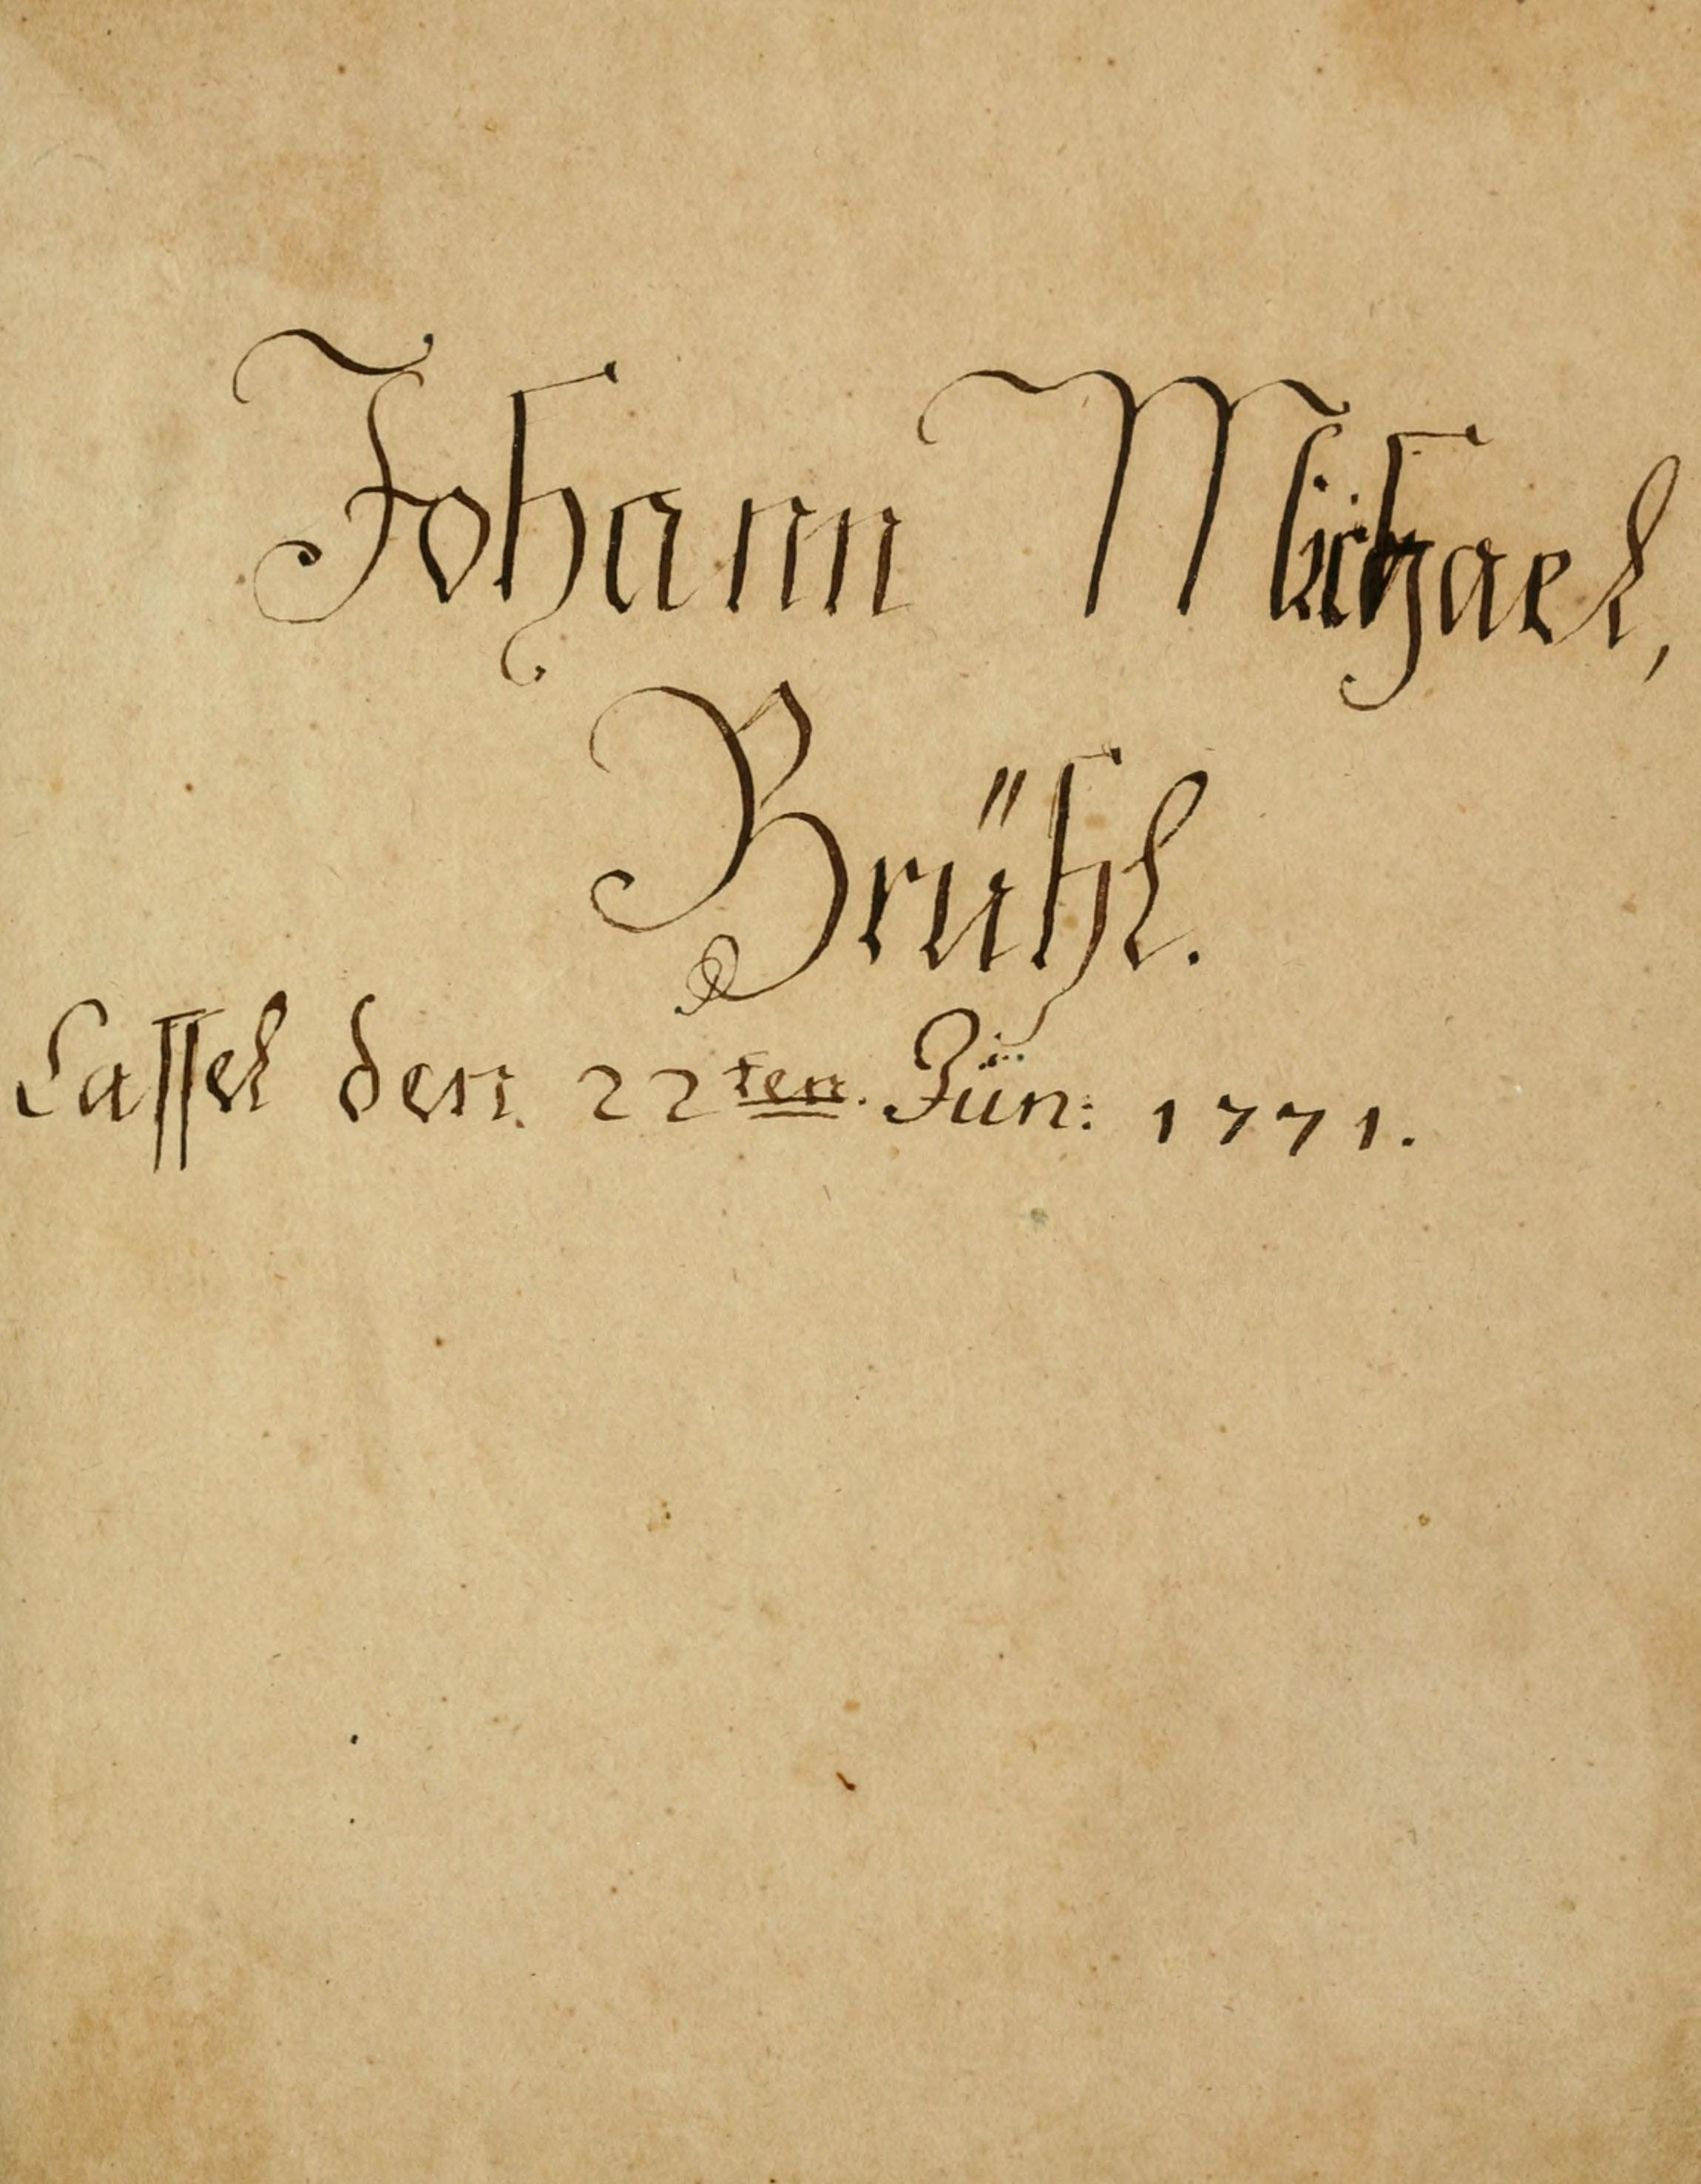 Johann Michael,
Brühl.
Cassel den. 22ten. Jün: 1771.